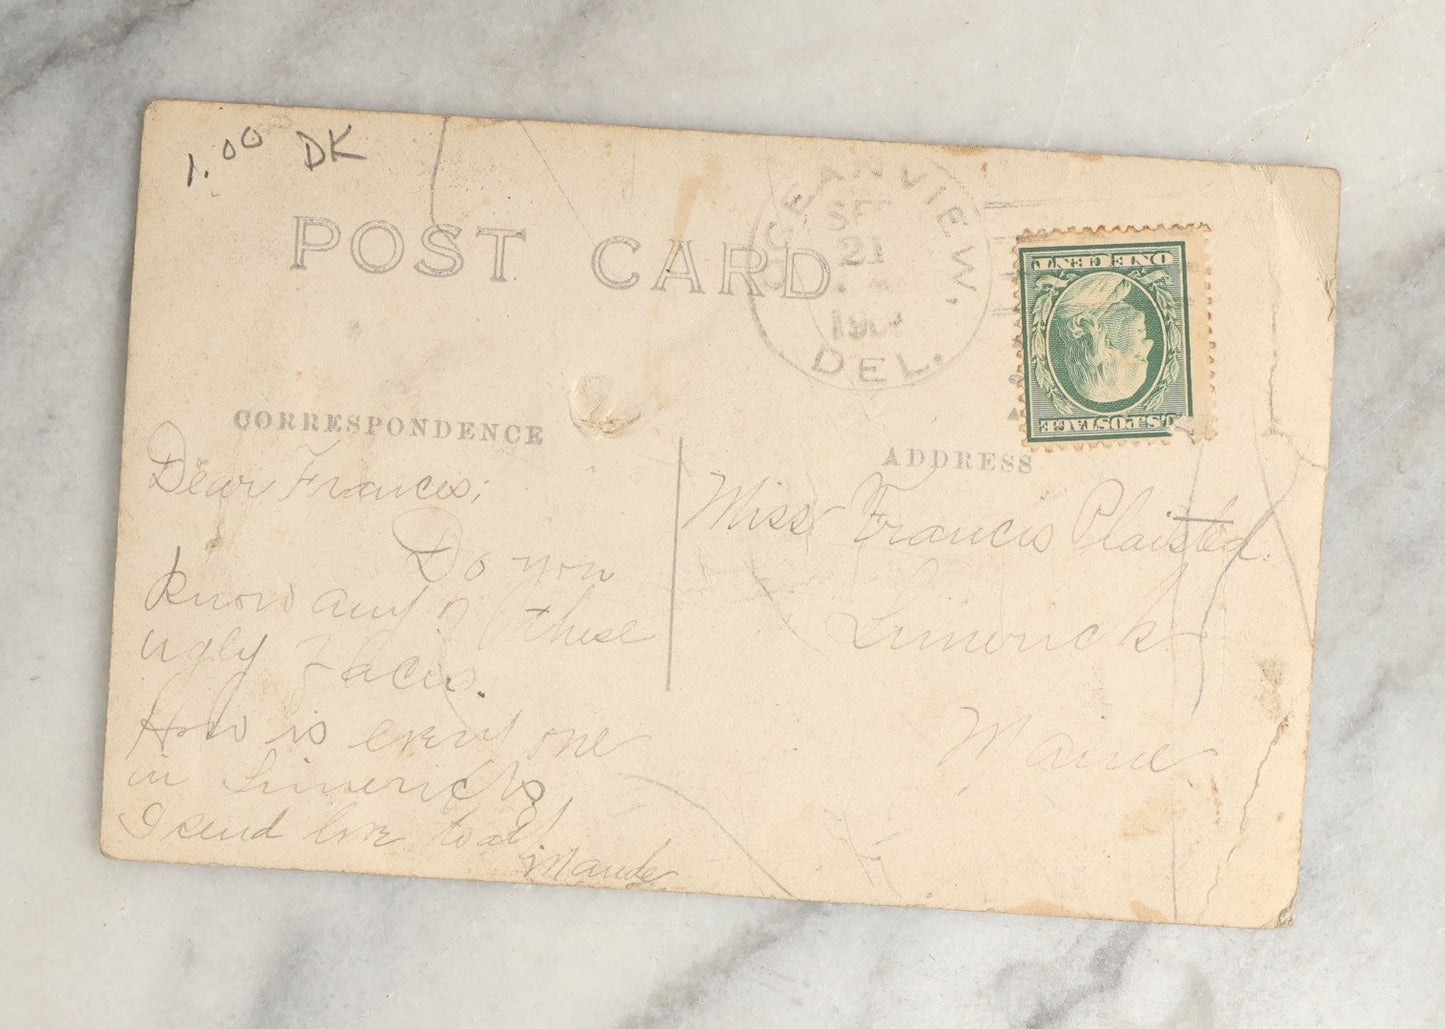 1.00 DK
POST CARD
OCEANVIEW,
SEP
21
190
DEL.
ONE CENT
U.S.POSTAGE
CORRESPONDENCE
Dear Francis;
Do you
know any of these
ugly faces.
How is every one
in Limerick
I send love to all
Maude
ADDRESS
Miss Francis Plaisted.
Limerick
Maine